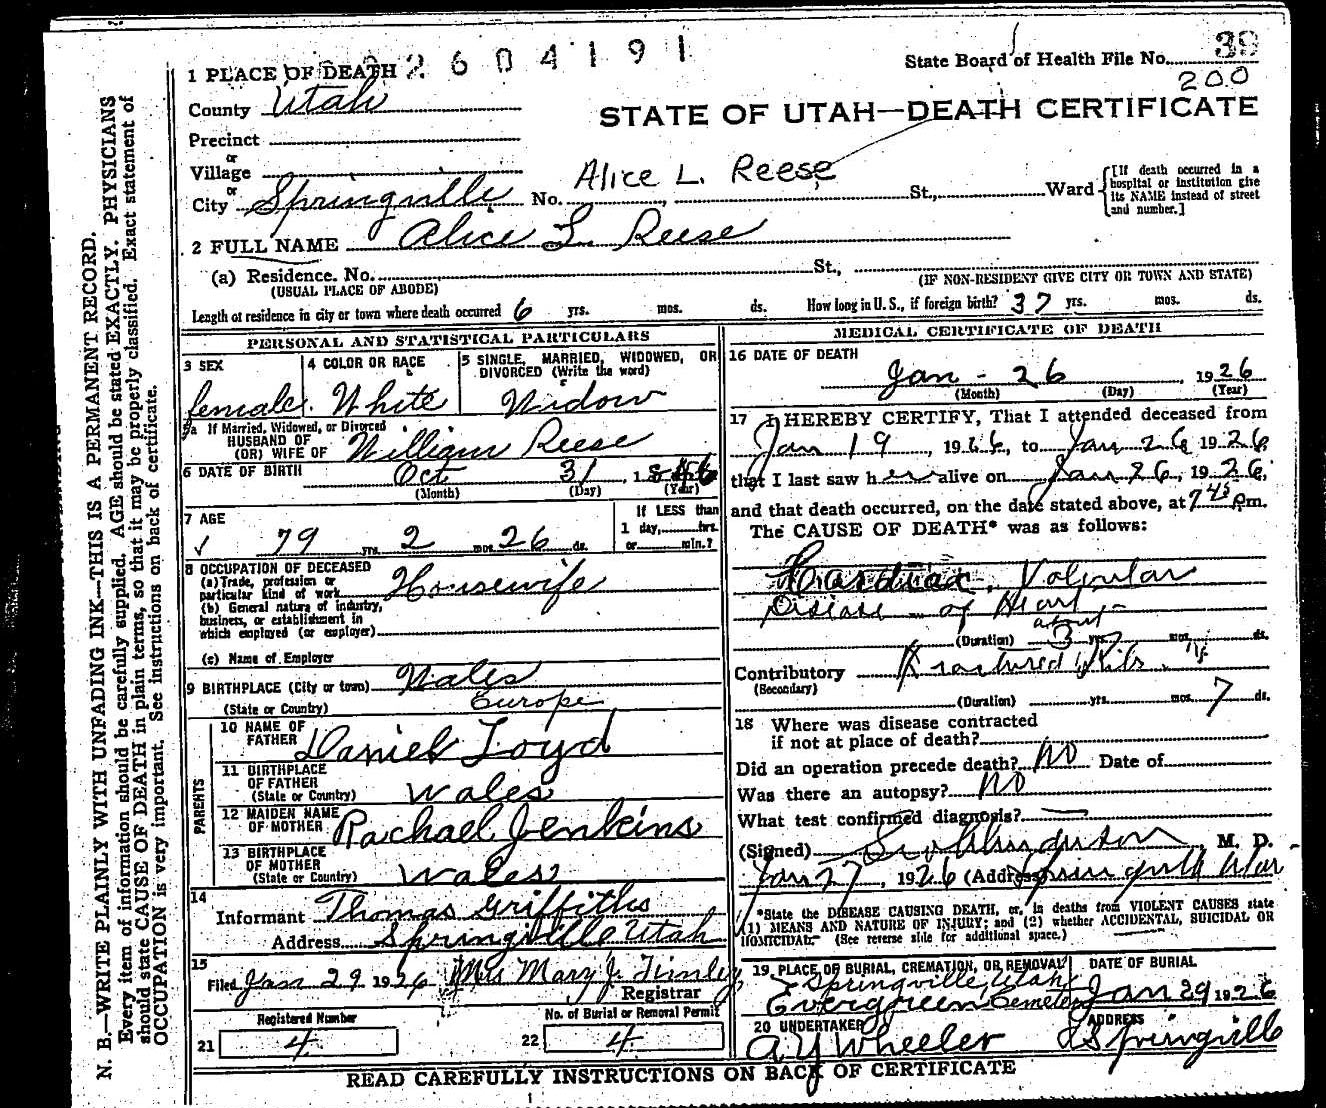 2604191
State Board of Health File No. 39
200
1 PLACE OF DEATH
County Utah
STATE OF UTAH—DEATH CERTIFICATE
Precinct
or
Village
or
City Springville No. Alice L. Reese St., Ward
[If death occurred in a hospital or institution give its NAME instead of street and number.]
2 FULL NAME Alice L. Reese
(a) Residence. No. St.,
(USUAL PLACE OF ABODE) (IF NON-RESIDENT GIVE CITY OR TOWN AND STATE)
Length of residence in city or town where death occurred 6 yrs. mos. ds. How long in U. S., if foreign birth? 37 yrs. mos. ds.
PERSONAL AND STATISTICAL PARTICULARS
3 SEX
female.
4 COLOR OR RACE
White
5 SINGLE, MARRIED, WIDOWED, OR DIVORCED (Write the word)
Widow
5a If Married, Widowed, or Divorced
HUSBAND OF
(OR) WIFE OF William Reese
6 DATE OF BIRTH Oct 31, 1846
(Month) (Day) (Year)
7 AGE
79 yrs. 2 mos. 26 ds.
If LESS than
1 day, hrs.
or min.?
8 OCCUPATION OF DECEASED
(a) Trade, profession or
particular kind of work Housewife
(b) General nature of industry,
business, or establishment in
which employed (or employer)
(c) Name of Employer
9 BIRTHPLACE (City or town) Wales
(State or Country) Europe
PARENTS
10 NAME OF
FATHER Daniel Loyd
11 BIRTHPLACE
OF FATHER
(State or Country) Wales
12 MAIDEN NAME
OF MOTHER Rachael Jenkins
13 BIRTHPLACE
OF MOTHER
(State or Country) Wales
14
Informant Thomas Griffiths
Address Springville Utah
15
Filed Jan 29 1926 Mrs Mary J. Finley
Registrar
Registered Number
21 4
No. of Burial or Removal Permit
22 4
MEDICAL CERTIFICATE OF DEATH
16 DATE OF DEATH
Jan - 26, 1926
(Month) (Day) (Year)
17 I HEREBY CERTIFY, That I attended deceased from
Jan 19, 1926, to Jan 26 1926
that I last saw her alive on Jan 26, 1926,
and that death occurred, on the date stated above, at 7 45 Pm.
The CAUSE OF DEATH* was as follows:
Cardiac, Valvular
Disease of Heart
about
(Duration) 3 yrs. mos. ds.
Contributory Fractured Ribs.
(Secondary)
(Duration) yrs. mos. 7 ds.
18 Where was disease contracted
if not at place of death?
Did an operation precede death? No Date of
Was there an autopsy? No
What test confirmed diagnosis? —
(Signed) M. D.
Jan 27, 1926 (Address) Springville Utah
*State the DISEASE CAUSING DEATH, or, in deaths from VIOLENT CAUSES state
(1) MEANS AND NATURE OF INJURY; and (2) whether ACCIDENTAL, SUICIDAL OR
HOMICIDAL. (See reverse side for additional space.)
19 PLACE OF BURIAL, CREMATION, OR REMOVAL
Springville, Utah
Evergreen Cemetery
DATE OF BURIAL
Jan 29 1926
20 UNDERTAKER
A Y Wheeler
ADDRESS
Springville
READ CAREFULLY INSTRUCTIONS ON BACK OF CERTIFICATE
N. B.—WRITE PLAINLY WITH UNFADING INK—THIS IS A PERMANENT RECORD.
Every item of information should be carefully supplied. AGE should be stated EXACTLY. PHYSICIANS
should state CAUSE OF DEATH in plain terms, so that it may be properly classified. Exact statement of
OCCUPATION is very important. See instructions on back of certificate.